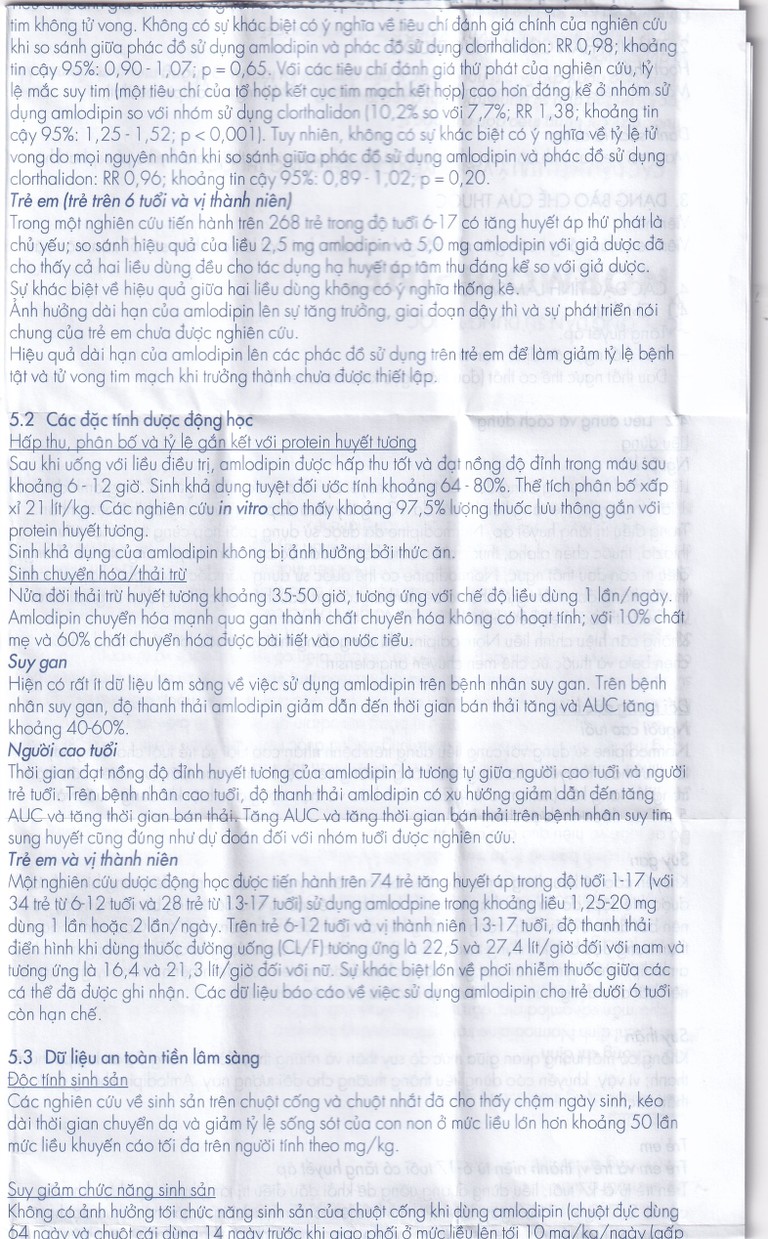 tim không tử vong. Không có sự khác biệt có ý nghĩa về tiêu chí đánh giá chính của nghiên cứu
khi so sánh giữa phác đồ sử dụng amlodipin và phác đồ sử dụng clorthalidon: RR 0,98; khoảng
tin cậy 95%: 0,90 - 1,07; p = 0,65. Với các tiêu chí đánh giá thứ phát của nghiên cứu, tỷ
lệ mắc suy tim (một tiêu chí của tổ hợp kết cục tim mạch kết hợp) cao hơn đáng kể ở nhóm sử
dụng amlodipin so với nhóm sử dụng clorthalidon (10,2% so với 7,7%; RR 1,38; khoảng tin
cậy 95%: 1,25 - 1,52; p < 0,001). Tuy nhiên, không có sự khác biệt có ý nghĩa về tỷ lệ tử
vong do mọi nguyên nhân khi so sánh giữa phác đồ sử dụng amlodipin và phác đồ sử dụng
clorthalidon: RR 0,96; khoảng tin cậy 95%: 0,89 - 1,02; p = 0,20.
Trẻ em (trẻ trên 6 tuổi và vị thành niên)
Trong một nghiên cứu tiến hành trên 268 trẻ trong độ tuổi 6-17 có tăng huyết áp thứ phát là
chủ yếu; so sánh hiệu quả của liều 2,5 mg amlodipin và 5,0 mg amlodipin với giả dược đã
cho thấy cả hai liều dùng đều cho tác dụng hạ huyết áp tâm thu đáng kể so với giả dược.
Sự khác biệt về hiệu quả giữa hai liều dùng không có ý nghĩa thống kê.
Ảnh hưởng dài hạn của amlodipin lên sự tăng trưởng, giai đoạn dậy thì và sự phát triển nói
chung của trẻ em chưa được nghiên cứu.
Hiệu quả dài hạn của amlodipin lên các phác đồ sử dụng trên trẻ em để làm giảm tỷ lệ bệnh
tật và tử vong tim mạch khi trưởng thành chưa được thiết lập.
5.2 Các đặc tính dược động học
Hấp thu, phân bố và tỷ lệ gắn kết với protein huyết tương
Sau khi uống với liều điều trị, amlodipin được hấp thu tốt và đạt nồng độ đỉnh trong máu sau
khoảng 6 - 12 giờ. Sinh khả dụng tuyệt đối ước tính khoảng 64 - 80%. Thể tích phân bố xấp
xỉ 21 lít/kg. Các nghiên cứu in vitro cho thấy khoảng 97,5% lượng thuốc lưu thông gắn với
protein huyết tương.
Sinh khả dụng của amlodipin không bị ảnh hưởng bởi thức ăn.
Sinh chuyển hóa/thải trừ
Nửa đời thải trừ huyết tương khoảng 35-50 giờ, tương ứng với chế độ liều dùng 1 lần/ngày.
Amlodipin chuyển hóa mạnh qua gan thành chất chuyển hóa không có hoạt tính; với 10% chất
mẹ và 60% chất chuyển hóa được bài tiết vào nước tiểu.
Suy gan
Hiện có rất ít dữ liệu lâm sàng về việc sử dụng amlodipin trên bệnh nhân suy gan. Trên bệnh
nhân suy gan, độ thanh thải amlodipin giảm dẫn đến thời gian bán thải tăng và AUC tăng
khoảng 40-60%.
Người cao tuổi
Thời gian đạt nồng độ đỉnh huyết tương của amlodipin là tương tự giữa người cao tuổi và người
trẻ tuổi. Trên bệnh nhân cao tuổi, độ thanh thải amlodipin có xu hướng giảm dẫn đến tăng
AUC và tăng thời gian bán thải. Tăng AUC và tăng thời gian bán thải trên bệnh nhân suy tim
sung huyết cũng đúng như dự đoán đối với nhóm tuổi được nghiên cứu.
Trẻ em và vị thành niên
Một nghiên cứu dược động học được tiến hành trên 74 trẻ tăng huyết áp trong độ tuổi 1-17 (với
34 trẻ từ 6-12 tuổi và 28 trẻ từ 13-17 tuổi) sử dụng amlodpine trong khoảng liều 1,25-20 mg
dùng 1 lần hoặc 2 lần/ngày. Trên trẻ 6-12 tuổi và vị thành niên 13-17 tuổi, độ thanh thải
điển hình khi dùng thuốc đường uống (CL/F) tương ứng là 22,5 và 27,4 lít/giờ đối với nam và
tương ứng là 16,4 và 21,3 lít/giờ đối với nữ. Sự khác biệt lớn về phơi nhiễm thuốc giữa các
cá thể đã được ghi nhận. Các dữ liệu báo cáo về việc sử dụng amlodipin cho trẻ dưới 6 tuổi
còn hạn chế.
5.3 Dữ liệu an toàn tiền lâm sàng
Độc tính sinh sản
Các nghiên cứu về sinh sản trên chuột cống và chuột nhắt đã cho thấy chậm ngày sinh, kéo
dài thời gian chuyển dạ và giảm tỷ lệ sống sót của con non ở mức liều lớn hơn khoảng 50 lần
mức liều khuyến cáo tối đa trên người tính theo mg/kg.
Suy giảm chức năng sinh sản
Không có ảnh hưởng tới chức năng sinh sản của chuột cống khi dùng amlodipin (chuột đực dùng
64 ngày và chuột cái dùng 14 ngày trước khi giao phối ở mức liều lên tới 10 mg/kg/ngày (gấp